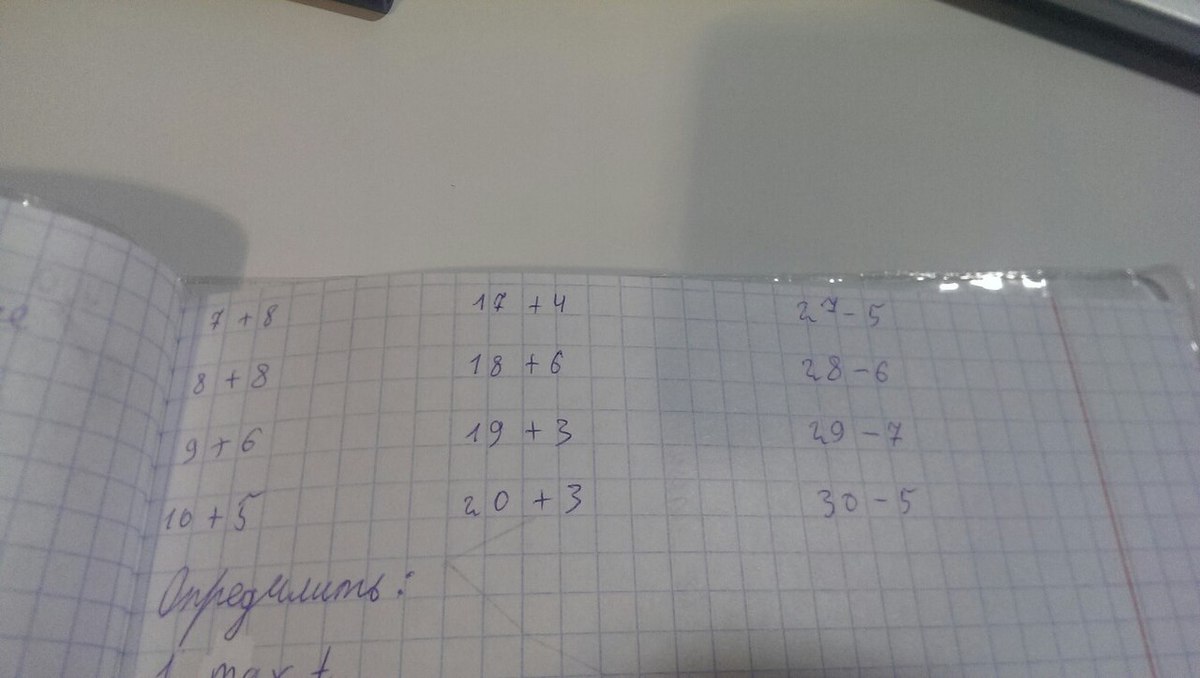 7 + 8 17 + 4 27 - 5
8 + 8 18 + 6 28 - 6
9 + 6 19 + 3 29 - 7
10 + 5 20 + 3 30 - 5
Определить:
1 max t